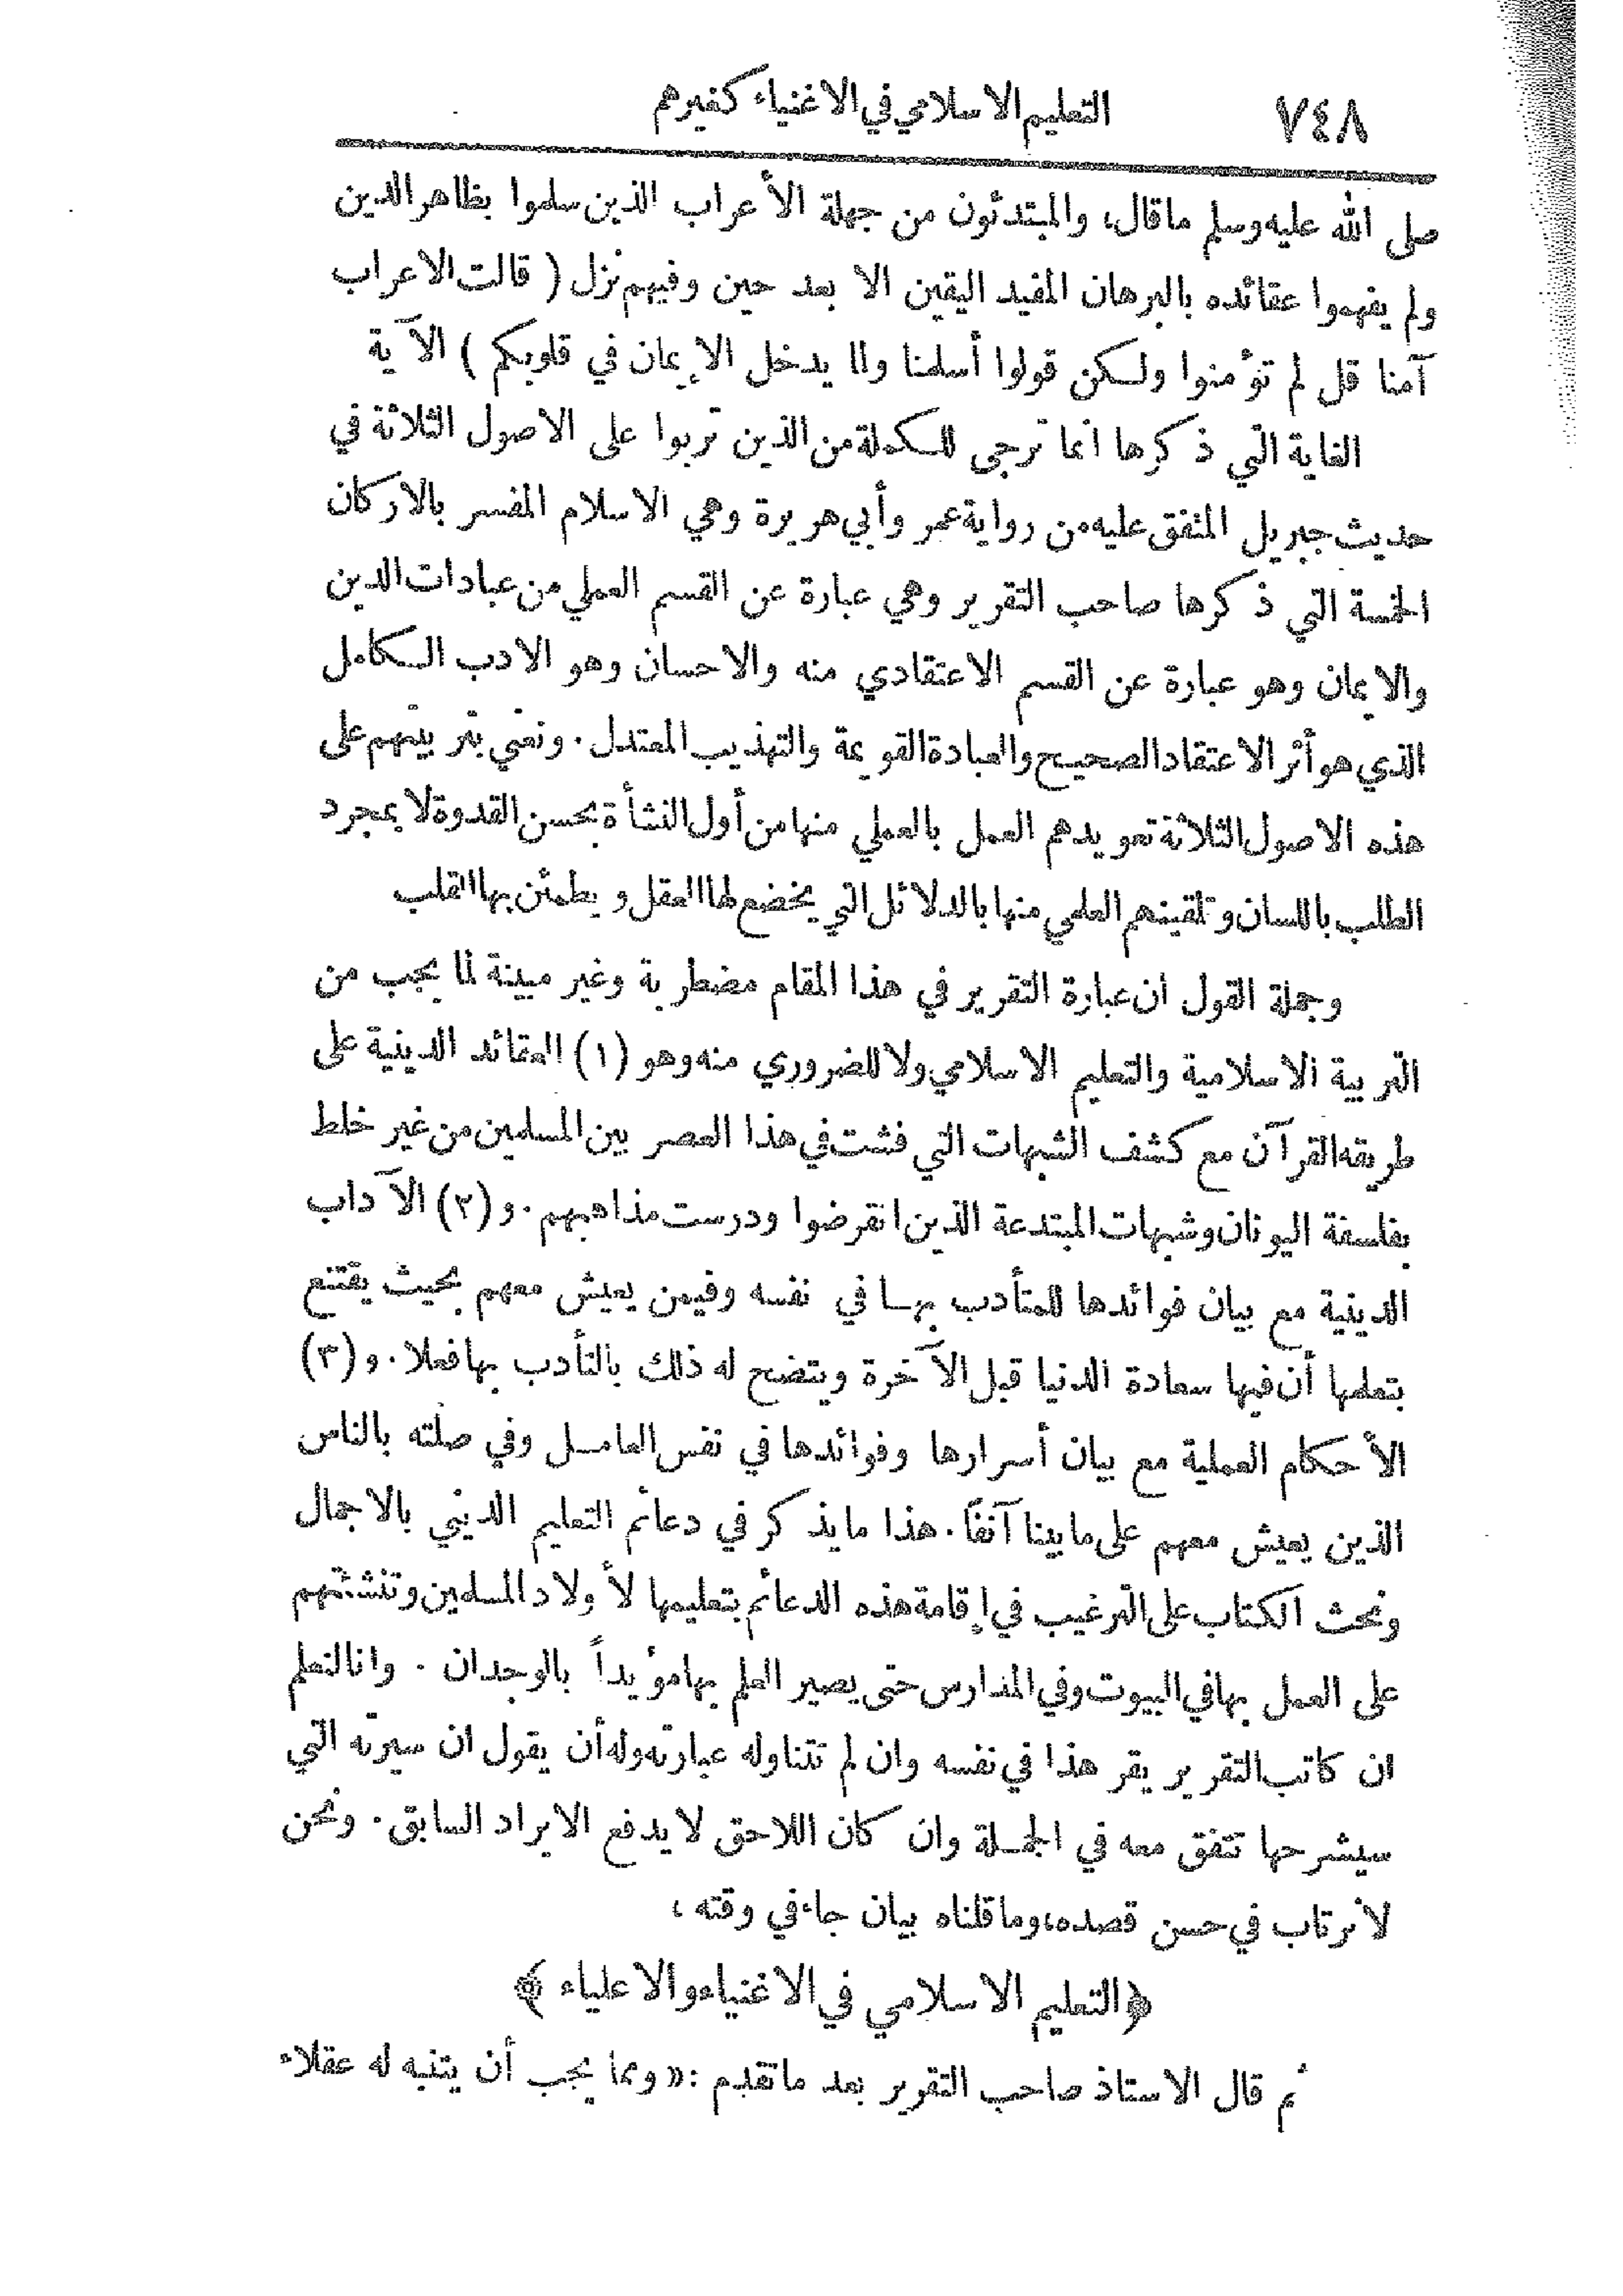 ٧٤٨ التعليم الاسلامي في الاغنياء كغيرهم
صلى الله عليه وسلم ماقال، والمبتدئون من جهلة الأعراب الذين سلموا بظاهر الدين
ولم يفهموا عقائده بالبرهان المفيد اليقين الا بعد حين وفيهم نزل ( قالت الاعراب
آمنا قل لم تؤمنوا ولكن قولوا أسلمنا ولما يدخل الإيمان في قلوبكم ) الآية
الغاية التي ذكرها انما ترجى للكملة من الذين تربوا على الاصول الثلاثة في
حديث جبريل المتفق عليه من رواية عمر وأبي هريرة وهي الاسلام المفسر بالاركان
الخمسة التي ذكرها صاحب التقرير وهي عبارة عن القسم العملي من عبادات الدين
والايمان وهو عبارة عن القسم الاعتقادي منه والاحسان وهو الادب الكامل
الذي هو أثر الاعتقاد الصحيح والعبادة القويمة والتهذيب المعتدل . ونعني بتربيتهم على
هذه الاصول الثلاثة تعويدهم العمل بالعملي منها من أول النشأة بحسن القدوة لا بمجرد
الطلب باللسان وتلقينهم العلمي منها بالدلائل التي يخضع لها العقل ويطمئن بها القلب
وجملة القول ان عبارة التقرير في هذا المقام مضطربة وغير مبينة لما يجب من
التربية الاسلامية والتعليم الاسلامي ولا للضروري منه وهو (١) العقائد الدينية على
طريقه القرآن مع كشف الشبهات التي فشت في هذا العصر بين المسلمين من غير خلط
بفلسفة اليونان وشبهات المبتدعة الذين انقرضوا ودرست مذاهبهم . و (٢) الآداب
الدينية مع بيان فوائدها للمتأدب بها في نفسه وفيمن يعيش معهم بحيث يقتنع
بتعلمها أن فيها سعادة الدنيا قبل الآخرة ويتضح له ذلك بالتأدب بها فعلا . و (٣)
الأحكام العملية مع بيان أسرارها وفوائدها في نفس العامل وفي صلته بالناس
الذين يعيش معهم على مابينا آنفاً . هذا مايذكر في دعائم التعليم الديني بالاجمال
ونحث الكتاب على الترغيب في إقامة هذه الدعائم بتعليمها لأولاد المسلمين وتنشئتهم
على العمل بها في البيوت وفي المدارس حتى يصير العلم بها مؤيداً بالوجدان . وانا لنعلم
ان كاتب التقرير يقر هذا في نفسه وان لم تتناوله عبارته وله أن يقول ان سيرته التي
سيشرحها تتفق معه في الجملة وان كان اللاحق لا يدفع الايراد السابق . ونحن
لا نرتاب في حسن قصده، وما قلناه بيان جاء في وقته ،
﴿ التعليم الاسلامي في الاغنياء والاعلياء ﴾
ثم قال الاستاذ صاحب التقرير بعد ماتقدم : « ومما يجب أن يتنبه له عقلاء